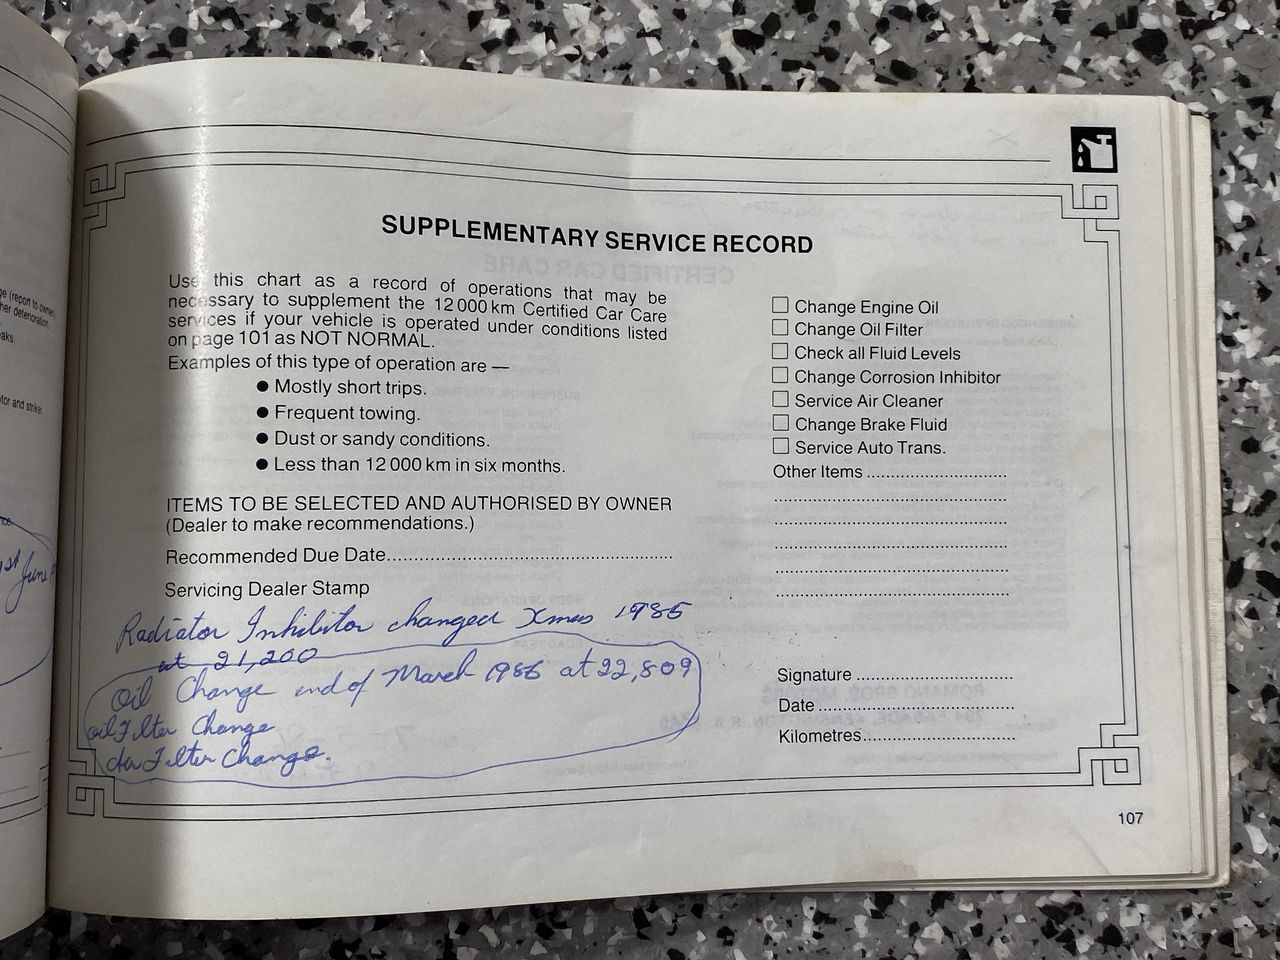 SUPPLEMENTARY SERVICE RECORD
Use this chart as a record of operations that may be
necessary to supplement the 12 000 km Certified Car Care
services if your vehicle is operated under conditions listed
on page 101 as NOT NORMAL.
Examples of this type of operation are —
● Mostly short trips.
● Frequent towing.
● Dust or sandy conditions.
● Less than 12 000 km in six months.
ITEMS TO BE SELECTED AND AUTHORISED BY OWNER
(Dealer to make recommendations.)
Recommended Due Date
Servicing Dealer Stamp
Radiator Inhibitor changed Xmas 1985
at 21,200
Oil Change end of March 1986 at 22,809
oil Filter Change
Filter Change.
Change Engine Oil
Change Oil Filter
Check all Fluid Levels
Change Corrosion Inhibitor
Service Air Cleaner
Change Brake Fluid
Service Auto Trans.
Other Items
Signature
Date
Kilometres
107